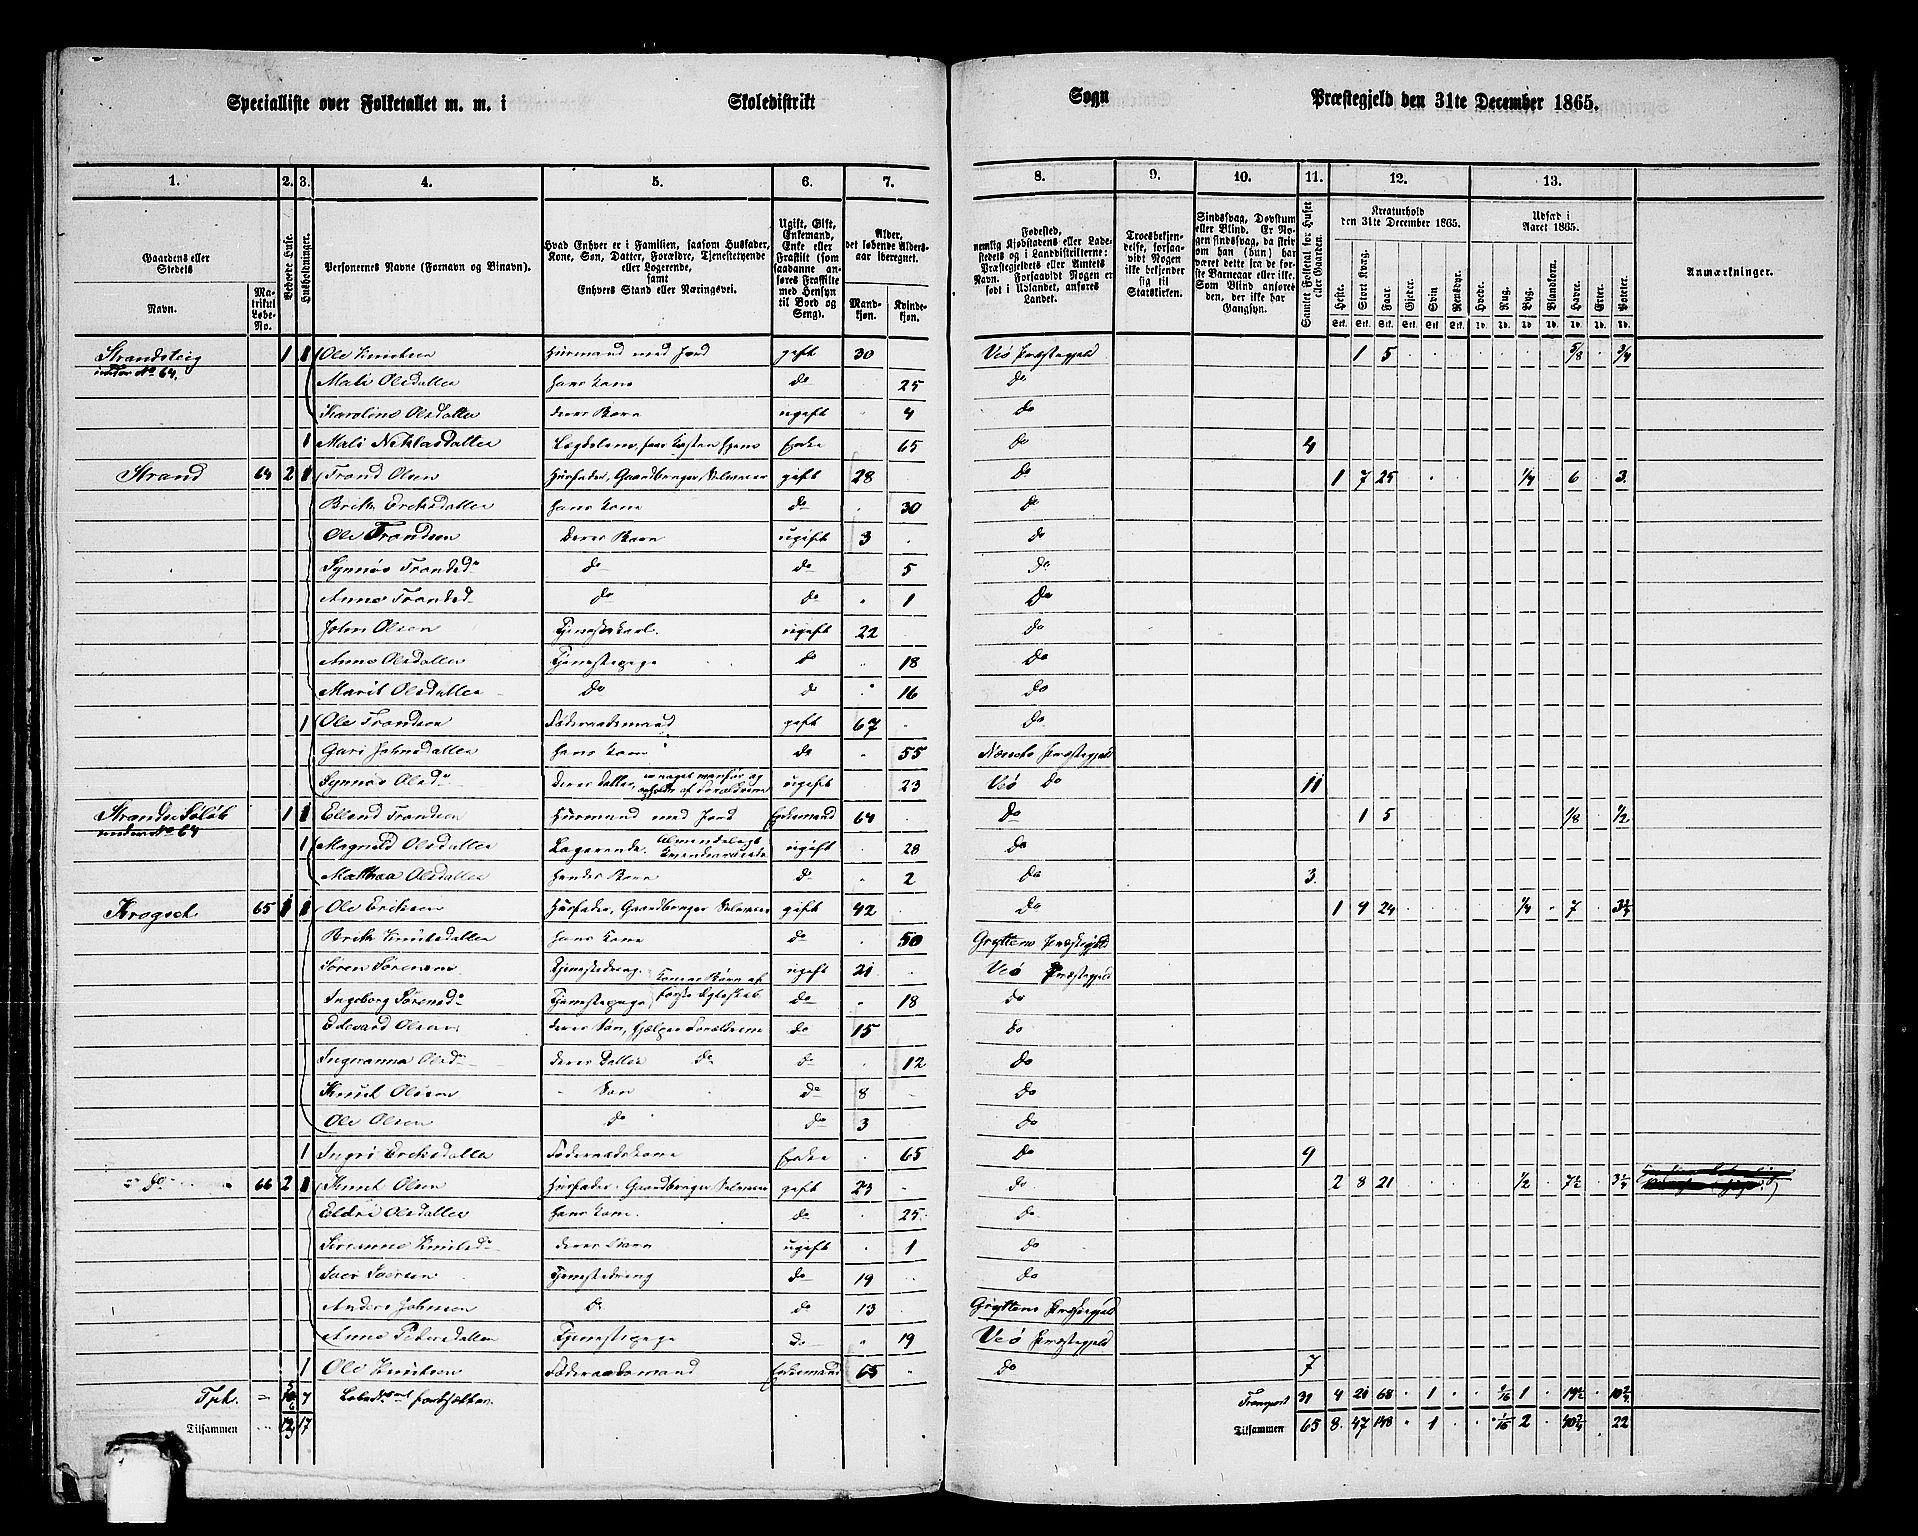 Specialliste over Folketallet m. m. i Skoledistrikt Sogn Præstegjeld den 31te December 1865.
1. 2. 3. 4. 5. 6. 7. 8. 9. 10. 11. 12. 13.
Gaardens eller Stedets
Navn.
Matrikul Løbe-No.
Beboede Huse.
Husholdninger.
Personernes Navne (Fornavn og Binavn).
Hvad Enhver er i Familien, saasom Husfader, Kone, Søn, Datter, Forældre, Tjenestetyende eller Logerende, samt Enhvers Stand eller Næringsvei.
Ugift, Gift, Enkemand, Enke eller Fraskilt (som saadanne anføres Fraskilte med Hensyn til Bord og Seng).
Alder, det løbende Alders-aar iberegnet.
Mandkjøn. Kvindekjøn.
Fødested, nemlig Kjøbstadens eller Ladestedets eller i Landdistrikterne: Præstegjeldets eller Amtets Navn. Forsaavidt Nogen er født i Udlandet, anføres Landet.
Troesbekjendelse, forsaavidt Nogen ikke bekjender sig til Statskirken.
Sindssvag, Døvstum eller Blind. Er Nogen sindssvag, da skriver man han (hun) har været dette fra de første Barneaar eller ikke. Som Blind ansøres den, der ikke har Gangsyn.
Samlet Folketal for Huset eller Gaarden.
Kreaturhold den 31te December 1865.
Heste. Stort Kvæg. Faar. Gjeder. Svin Rensdyr.
Udsæd i Aaret 1865.
Hvede. Rug. Byg. Blandkorn. Havre. Erter. Poteter.
Anmærkninger.
Strandsteig 1 1 Ole Knudsen Husmand med Jord gift 30 Veø Præstegjeld 1 5 5/8 3/4
under No 64. Mali Olsdatter hans Kone do 25 Do
Karoline Olsdatter deres Barn ugift 4 Do
1 Mali Niklasdatter Enke 65 Do 4
Strand 64 2 1 Trond Olsen Husfader, Gaardbruger, Selveier gift 28 Do 1 7 25 1/4 6 3
Brit Eriksdatter hans Kone do 30 Do
Ole Trondsen deres Barn ugift 3 Do
Synnøv Trondsd do do 5 Do
Anne Trondsd do do 1 Do
John Olsen Tjenestekarl ugift 22 Do
Anne Olsdatter Tjenestepige do 18 Do
Marit Olsdatter do do 16 Do
1 Ole Trondsen Føderaadsmand gift 67 Do
Guri Johnsdatter hans Kone do 55 Nessets Præstegjeld
Synnøv Olsd deres Datter, ugift 23 Veø Do 11
1 1 Erland Trondsen Husmand med Jord Enkemand 64 Do 1 5 1/8 1/2
under No 64 1 Magnild Olsdatter Logerende. ugift 28 Do
Mathea Olsdatter hendes Barn do 2 Do 3
65 1 1 Ole Eriksen Husfader, Gaardbruger Selveier gift 42 Do 1 4 24 1/4 7 3 3/4
Brit Knudsdatter hans Kone do 50 Gryttens Præstegjeld
Søren Sørensen Tjenestedreng Konens Børn af ugift 21 Veø Præstegjeld
Ingeborg Sørensd Tjenestepige første Egteskab do 18 Do
Edevard Olsen deres Søn, hjelper Forældrene do 15 Do
Ingeranna Olsd deres Datter do do 12 Do
Knud Olsen Søn do 8 Do
Ole Olsen do do 3 Do
1 Ingri Eriksdatter Føderaadskone Enke 65 Do 9
do 66 2 1 Knud Olsen Husfader, Gaardbruger Selveier gift 23 Do 2 8 21 1/2 7 1/2 3 1/4
Eldri Olsdatter hans Kone. do 25 Do
Knudsd deres Barn ugift 1 Do
Tjenestedreng do 19 Do
Anders Johnsen do do 13 Gryttens Præstegjeld
Anne Pedersdatter Tjenestepige do 19 Veø Præstegjeld
1 Ole Knudsen Føderaadsmand Enkemand 65 Do 7
7 Transport 31 4 21 68 1 1
Tilsammen 17 Tilsammen 65 8 47 148 1 1/16 2 22